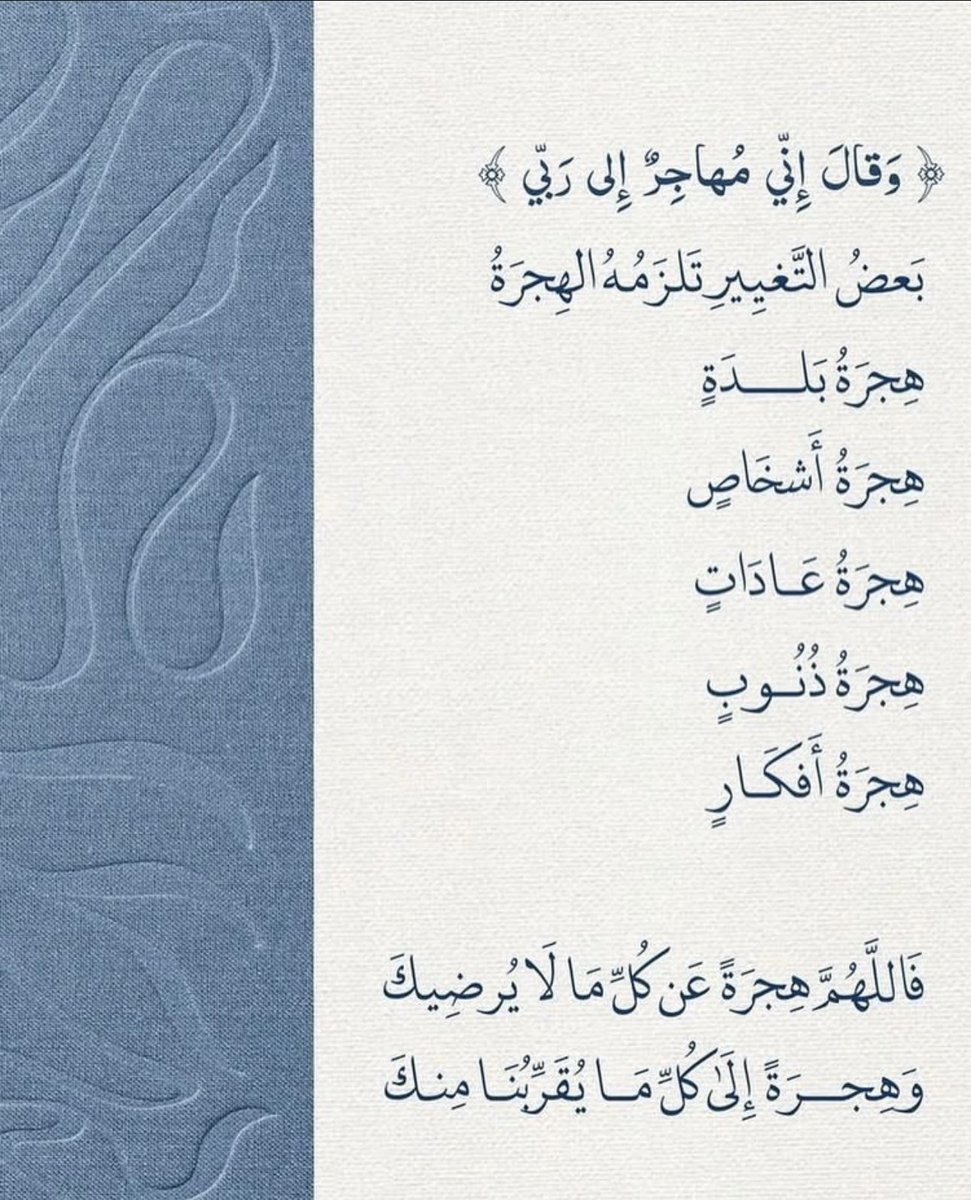 ﴿ وَقالَ إِنّي مُهاجِرٌ إِلى رَبّي ﴾
بَعضُ التَّغيِيرِ تَلزَمُهُ الهِجرَةُ
هِجرَةُ بَلـــدَةٍ
هِجرَةُ أَشخَاصٍ
هِجرَةُ عَـادَاتٍ
هِجرَةُ ذُنُـوبٍ
هِجرَةُ أَفكَـارٍ
فَاللَّهُمَّ هِجرَةً عَن كُلِّ مَا لَا يُرضِيكَ
وَهِجـــرَةً إِلَىٰ كُلِّ مَـا يُقَرِّبُنَـا مِنـكَ